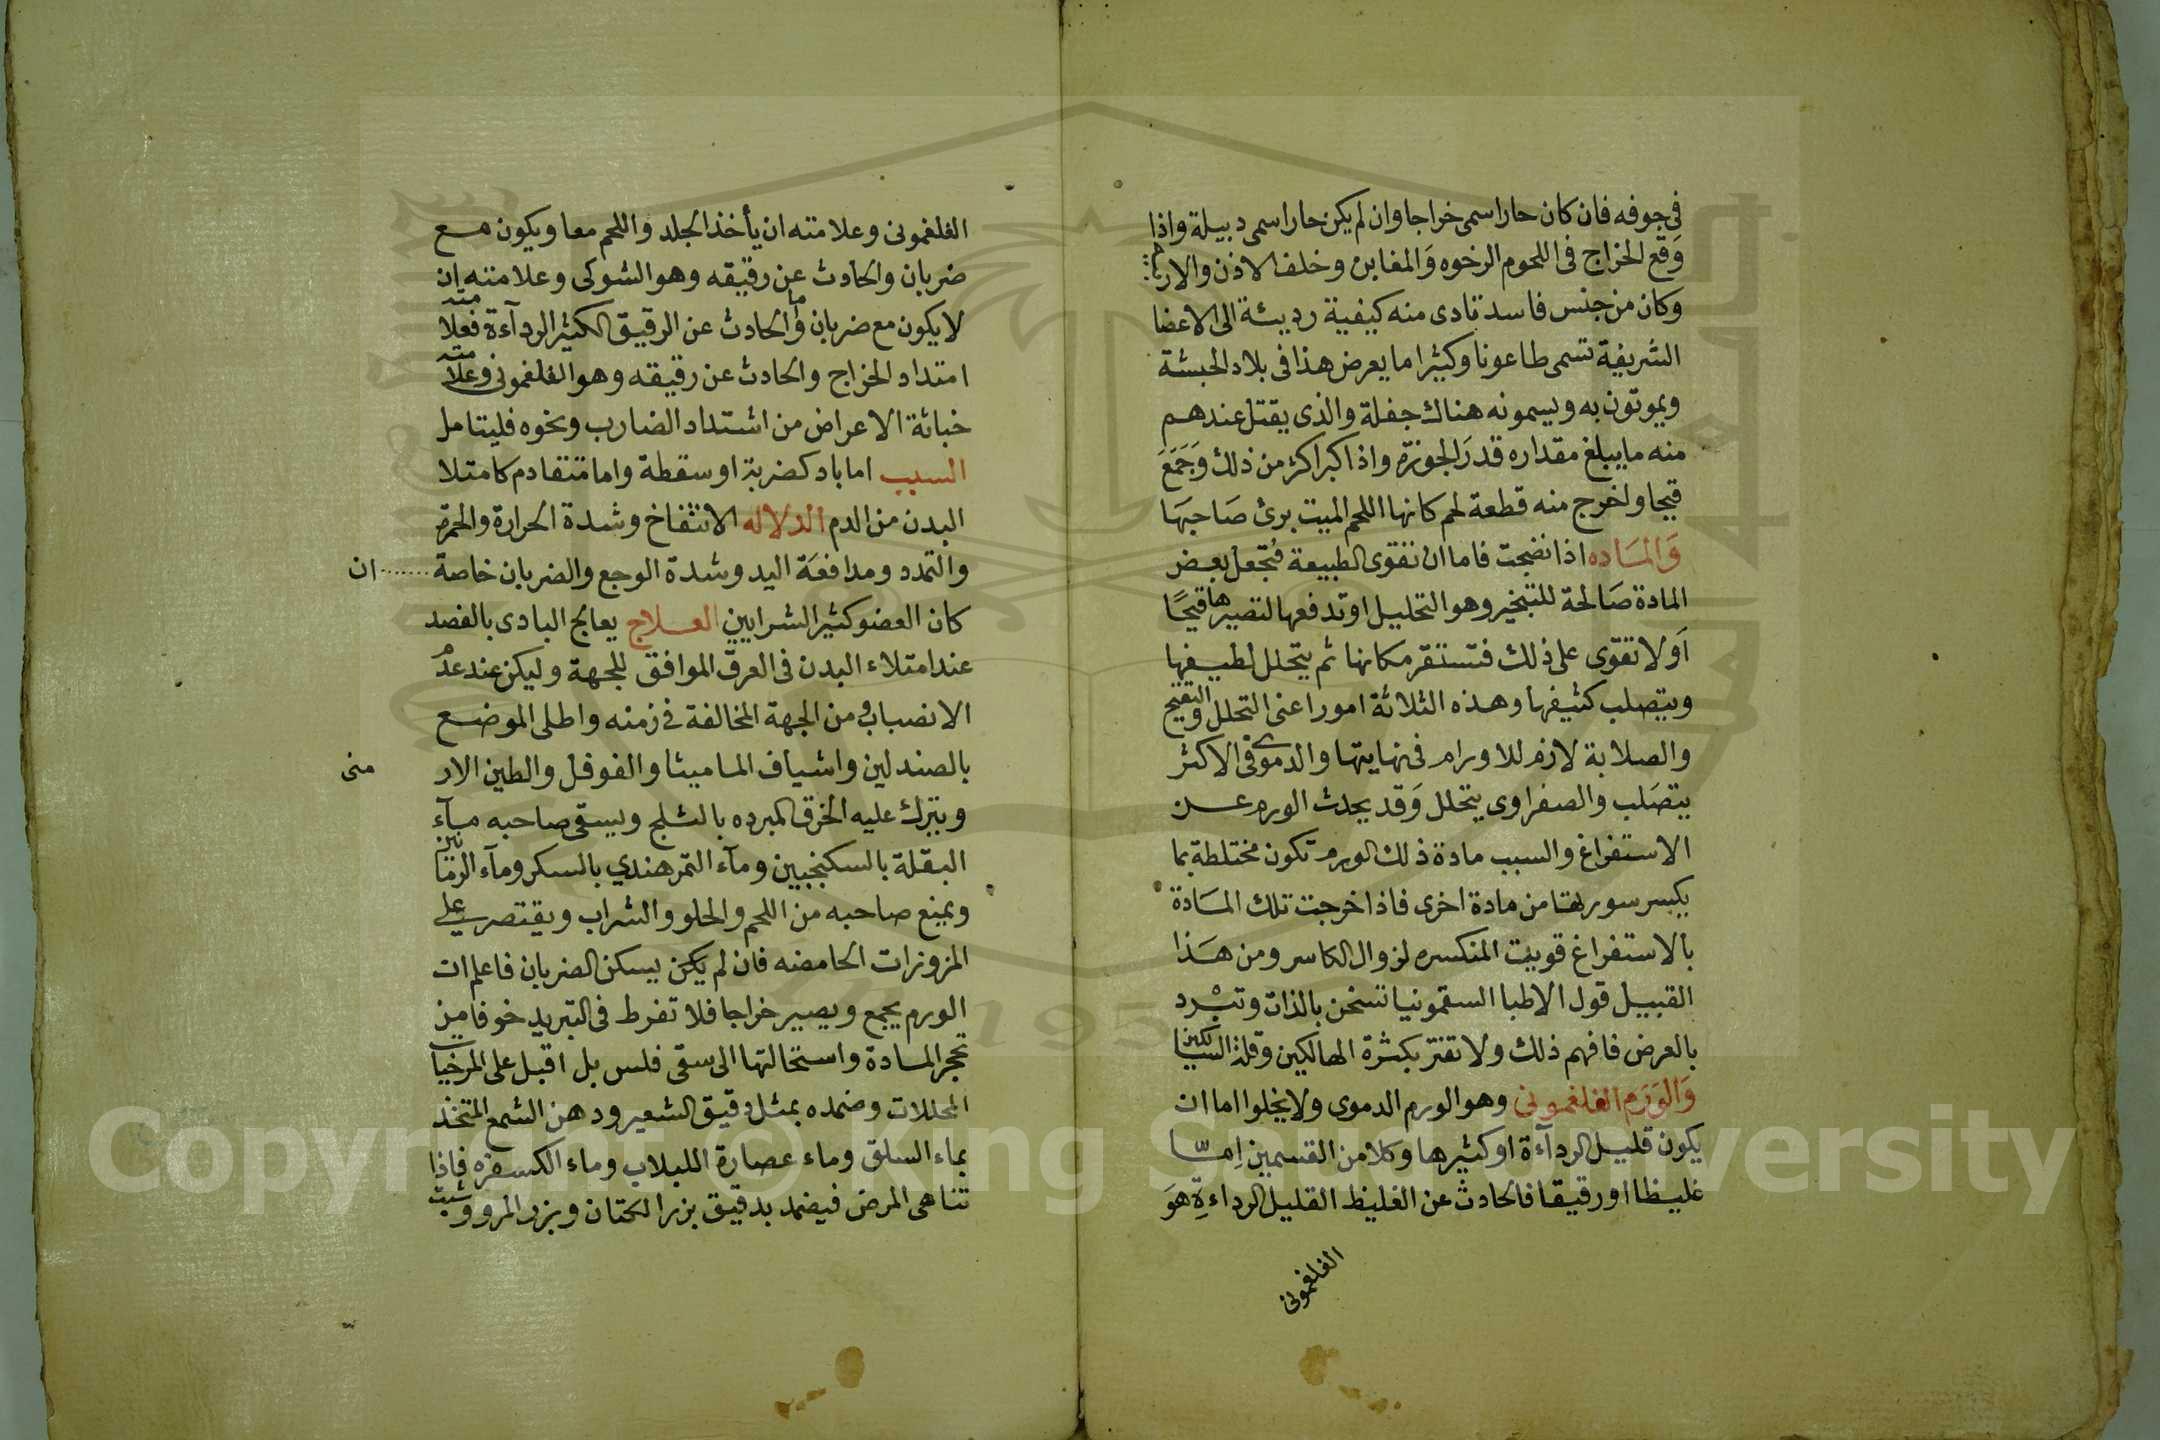 في جوفه فان كان حارا سمى خراجا وان لم يكن حارا سمى دبيلة واذا
وَقع الخراج في اللحوم الرخوه وَالمغابن وخلف الاذن والار
وكان من جنس فاسد تادى منه كيفية رديئة الى الاعضا
الشريفة تسمى طاعونا وكثيرا ما يعرض هذا في بلاد الحبشة
ويموتون به ويسمونه هناك جفلة والذى يقتل عندهم
منه ما يبلغ مقداره قدرَ الجوزة واذا كبر اكثر من ذلك وَجَمَعَ
قيحا واخرج منه قطعة لحم كانها اللحم الميت برئ صَاحبهَا
وَالمَاده اذا نضجت فاما ان تقوى الطبيعة فتجعل بعض
المادة صَالحة للتبخير وهو التحليل او تدفعها لتصيرها قيحًا
اَو لا تقوّى على ذلك فتستقر مكانها ثم يتحلل لطيفها
ويتصلب كثيفها وهذه الثلاثة امور اعنى التحلل والتقيح
والصلابة لازم للاورام في نهايتها والدموى في الاكثر
يتصَلب والصفراوى يتحلل وَقد يحدث الورم عن
الاستفراغ والسبب مادة ذلك الورم تكون مختلطة بما
يكسر سورتها من مادة اخرى فاذا خرجت تلك المَادة
بالاستفراغ قويت المنكسره لزوال الكاسر ومن هَذا
القبيل قول الاطبا السقمونيا تسخن بالذات وتبْرد
بالعرض فافهم ذلك ولا تغتر بكثرة الهالكين وقلة السالكين
وَالوَرَم الفلغمونى وهو الورم الدموى ولا يخلوا اما ان
يكون قليل الرداءة او كثيرها وكلا من القسمين اِمّا
غليظا او رقيقا فالحادث عن الغليظ القليل الرداءةِ هوَ
الفلغمونى
الفلغمونى وعلامته ان يأخذ الجلد واللحم معا ويكون مع
ضربان والحادث عن رقيقه وهو الشوكى وعلامته ان
لا يكون مع ضربان واما الحادث عن الرقيق الكثير الرداءة فعلامته
امتداد الخراج والحادث عن رقيقه وهو الفلغمونى وعلامته
خباثة الاعراض من اشتداد الضارب ونحوه فليتامل
السبب اما باد كضربة او سقطة واما متقادم كامتلا
البدن من الدم الدلاله الانتفاخ وشدة الحرارة والحمرة
والتمدد ومدافعَة اليد وشدة الوجع والضربان خاصة ان
كان العضو كثير الشرايين العلاج يعالج البادى بالفصد
عند امتلاء البدن في العرق الموافق للجهة وليكن عند عدم
الانصباب ومن الجهة المخالفة في زمنه واطلى الموضع
بالصندلين واشياف الماميثا والفوفل والطين الار منى
ويترك عليه الخرق المبرده بالثلج ويسقى صاحبه مآء
البقلة بالسكنجبين ومآء التمر هندي بالسكر ومآء الرمانين
ويمنع صاحبه من اللحم والحلو والشراب ويقتصر على
المزوزات الحامضه فان لم يكن يسكن الضربان فاعلم ان
الورم يجمع ويصير خراجا فلا تفرط في التبريد خوفا من
تحجر المادة واستحالتها الى سقى فلس بل اقبل على المرخيات
المحللات وضمده بمثل دقيق الشعير ودهن الشمع المتخذ
بماء السلق وماء عصارة اللبلاب وماء الكسفره فاذا
تناهى المرض فيضمد بدقيق بزر الكتان وبزر المرو وشبت
Copyright © King Saud University
1957